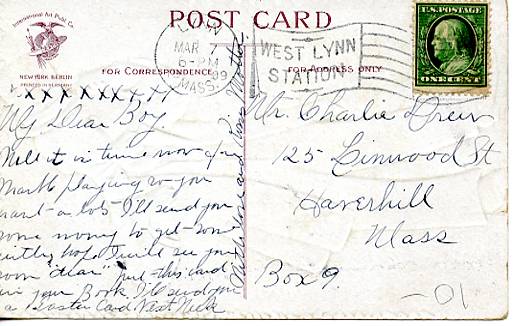 International Art Publ. Co.
NEW YORK BERLIN
PRINTED IN GERMANY
POST CARD
FOR CORRESPONDENCE
FOR ADDRESS ONLY
LYNN
MAR 7
6-PM
MASS.
WEST LYNN
STATION
U.S. POSTAGE
ONE CENT
xxxxxxxxx
My Dear Boy.
Well it is time now for
Marble playing so you
want a lot I'll send you
some money to get some
with, hope I will see you
soon "dear" put this card
in your Book, I'll send you
a Easter Card Next Week
With love and Kiss Mother
Mr Charlie Drew
125 Linwood St
Haverhill
Mass
Box 9.